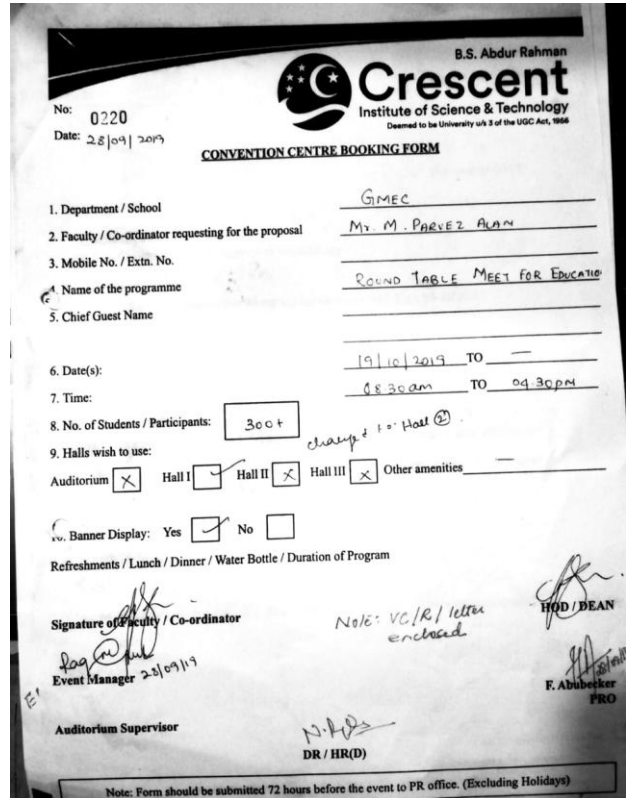 B.S. Abdur Rahman
Crescent
Institute of Science & Technology
Deemed to be University u/s 3 of the UGC Act, 1956
No: 0220
Date: 28/09/2019
CONVENTION CENTRE BOOKING FORM
1. Department / School GMEC
2. Faculty / Co-ordinator requesting for the proposal Mr. M. PARVEZ ALAM
3. Mobile No. / Extn. No.
4. Name of the programme ROUND TABLE MEET FOR EDUCATIO
5. Chief Guest Name
6. Date(s): 19/10/2019 TO —
7. Time: 08.30am TO 04.30PM
8. No. of Students / Participants: 300+
change to Hall 2
9. Halls wish to use:
Auditorium X Hall I ✓ Hall II X Hall III X Other amenities —
10. Banner Display: Yes ✓ No
Refreshments / Lunch / Dinner / Water Bottle / Duration of Program
Signature of Faculty / Co-ordinator
Note: VC/R/letter
enclosed
HOD / DEAN
Event Manager 28/09/19
F. Abubecker
PRO
Auditorium Supervisor
DR / HR(D)
Note: Form should be submitted 72 hours before the event to PR office. (Excluding Holidays)